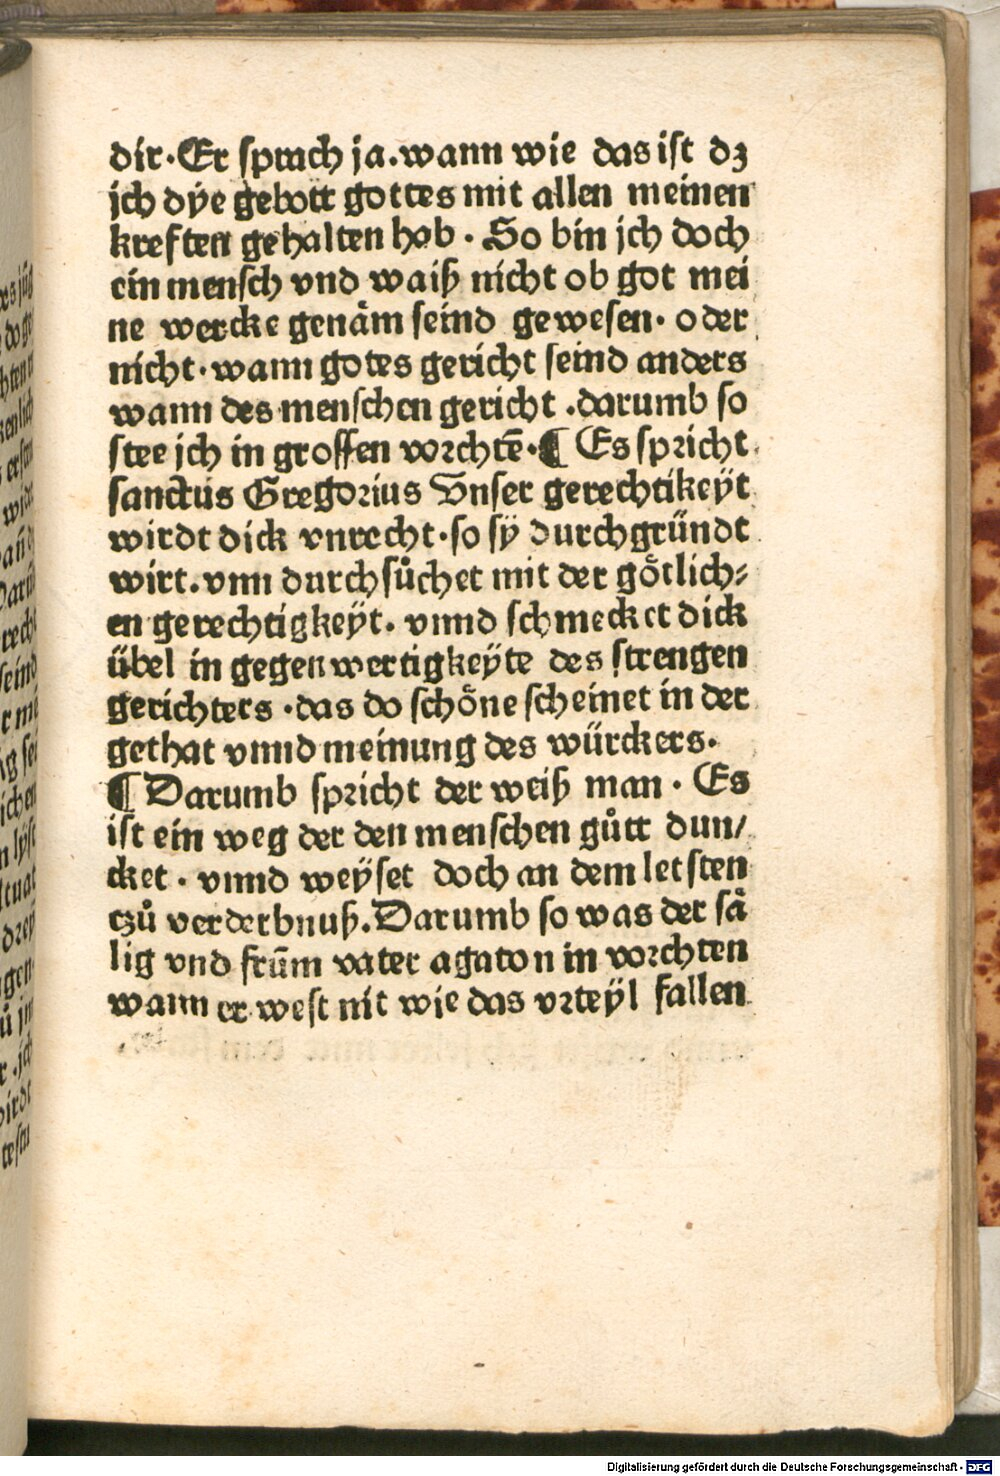 dir·Er sprach ja.wann wie das ist dz
ich dÿe gebott gottes mit allen meinen
kreften gehalten hab · So bin ich doch
ein mensch vnd waiß nicht ob got mei
ne wercke genäm seind gewesen· oder
nicht·wann gotes gericht seind anders
wann des menschen gericht .darumb so
stee ich in grossen vorchtē·¶ Es spricht
sanctus Gregorius Vnser gerechtikeÿt
wirdt dick vnrecht·so sÿ durchgründt
wirt.vnn durchsůchet mit der götlich⸗
en gerechtigkeÿt. vnnd schmecket dick
übel in gegenwertigkeÿte des strengen
gerichters ·das do schöne scheinet in der
gethat vnnd meinung des würckers.
¶ Darumb spricht der weiß man · Es
ist ein weg der den menschen gůtt dun/
cket · vnnd weÿset doch an dem letsten
tzů verderbnuß.Darumb so was der sä
lig vnd frūm vater agaton in vorchten
wann er west nit wie das vrteÿl fallen
Digitalisierung gefördert durch die Deutsche Forschungsgemeinschaft - DFG